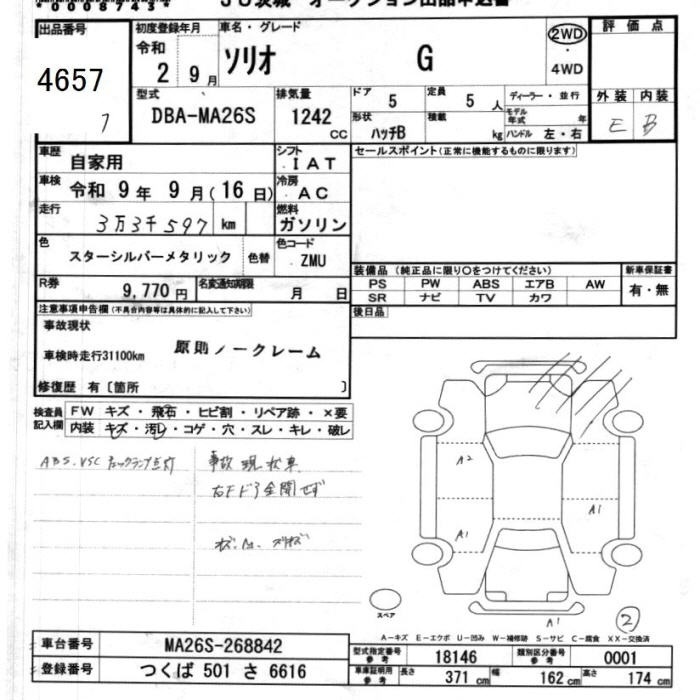 *00087434*
JU茨城 オークション出品申込書
出品番号 4657 7
初度登録年月 令和 2 9月
車名・グレード ソリオ G
2WD
4WD
評価点
型式 DBA-MA26S
排気量 1242 CC
ドア 5
定員 5 人
形状 ハッチB
積載 kg
ディーラー・並行
モデル年式 年
ハンドル 左・右
外装 内装
E B
車歴 自家用
シフト IAT
車検 令和 9年 9月(16日)
冷房 AC
走行 3万3千597 km
燃料 ガソリン
色 スターシルバーメタリック 色替
色コード ZMU
R券 9,770円
名変通知期限 月 日
セールスポイント(正常に機能するものに限ります)
装備品(純正品に限り○をつけてください) 新車保証書
PS PW ABS エアB AW 有・無
SR ナビ TV カワ
後日品
注意事項申告欄(不具合内容等は具体的に記入して下さい)
事故現状
車検時走行31100km 原則ノークレーム
修復歴 有〔箇所 〕
検査員記入欄
FW キズ・飛石・ヒビ割・リペア跡・×要
内装 キズ・汚レ・コゲ・穴・スレ・キレ・破レ
ABS.VSC チェックランプ点灯
事故現状車
右Fドア全開せず
A2
A1
A1
A1
2
スペア
A-キズ E-エクボ U-凹み W-補修跡 S-サビ C-腐食 XX-交換済
車台番号 MA26S-268842
登録番号 つくば 501 さ 6616
型式指定番号 参考 18146
類別区分番号 参考 0001
車庫証明用 参考 長さ 371 cm 幅 162 cm 高さ 174 cm